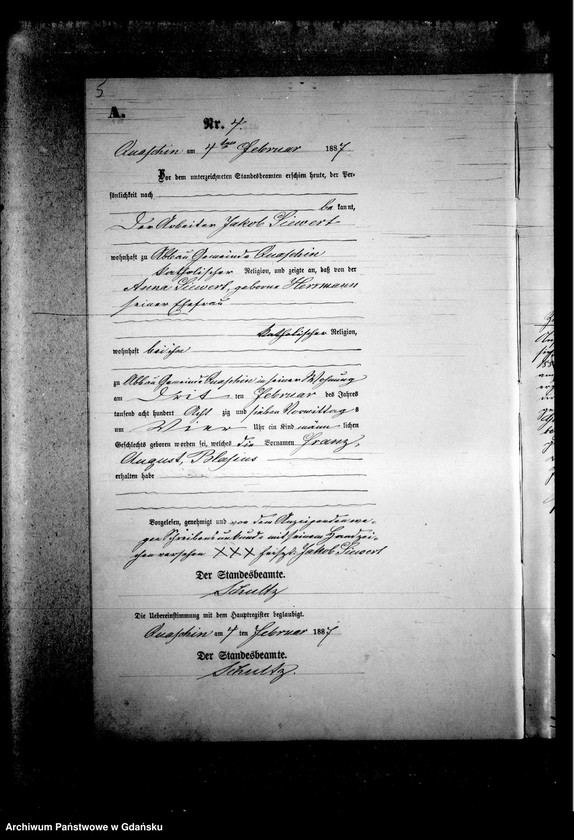 5
A.
Nr. 7.
Quaschin am 7ten Februar 1887
Vor dem unterzeichneten Standesbeamten erschien heute, der Per-
sönlichkeit nach
bekannt,
Der Arbeiter Jakob Siewert
wohnhaft zu Abbau Gemeinde Quaschin
katholischer Religion, und zeigte an, daß von der
Anna Siewert, geborne Herrmann
seiner Ehefrau
katholischer Religion,
wohnhaft bei ihm
zu Abbau Gemeinde Quaschin in seiner Wohnung
am Drit ten Februar des Jahres
tausend acht hundert Acht zig und sieben Vormittags
um Vier Uhr ein Kind männlichen
Geschlechts geboren worden sei, welches die Vornamen Franz,
August, Blasius
erhalten habe
Vorgelesen, genehmigt und von dem Anzeigenden we-
gen Schreibensunkunde mit seinem Handzei-
chen versehen XXX Jakob Siewert
Der Standesbeamte.
Schultz
Die Uebereinstimmung mit dem Hauptregister beglaubigt.
Quaschin am 7 ten Februar 1887
Der Standesbeamte.
Schultz.
Archiwum Państwowe w Gdańsku